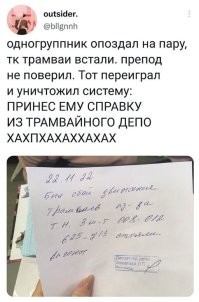 outsider.
@bllgnnh
одногруппник опоздал на пару,
тк трамваи встали. препод
не поверил. Тот переиграл
и уничтожил систему:
ПРИНЕС ЕМУ СПРАВКУ
ИЗ ТРАМВАЙНОГО ДЕПО
ХАХПХАХАХХАХАХ
22 11 22
Был сбой движения
трамваев из-за
Т.Н. 3 м-т 008. 012
625-713